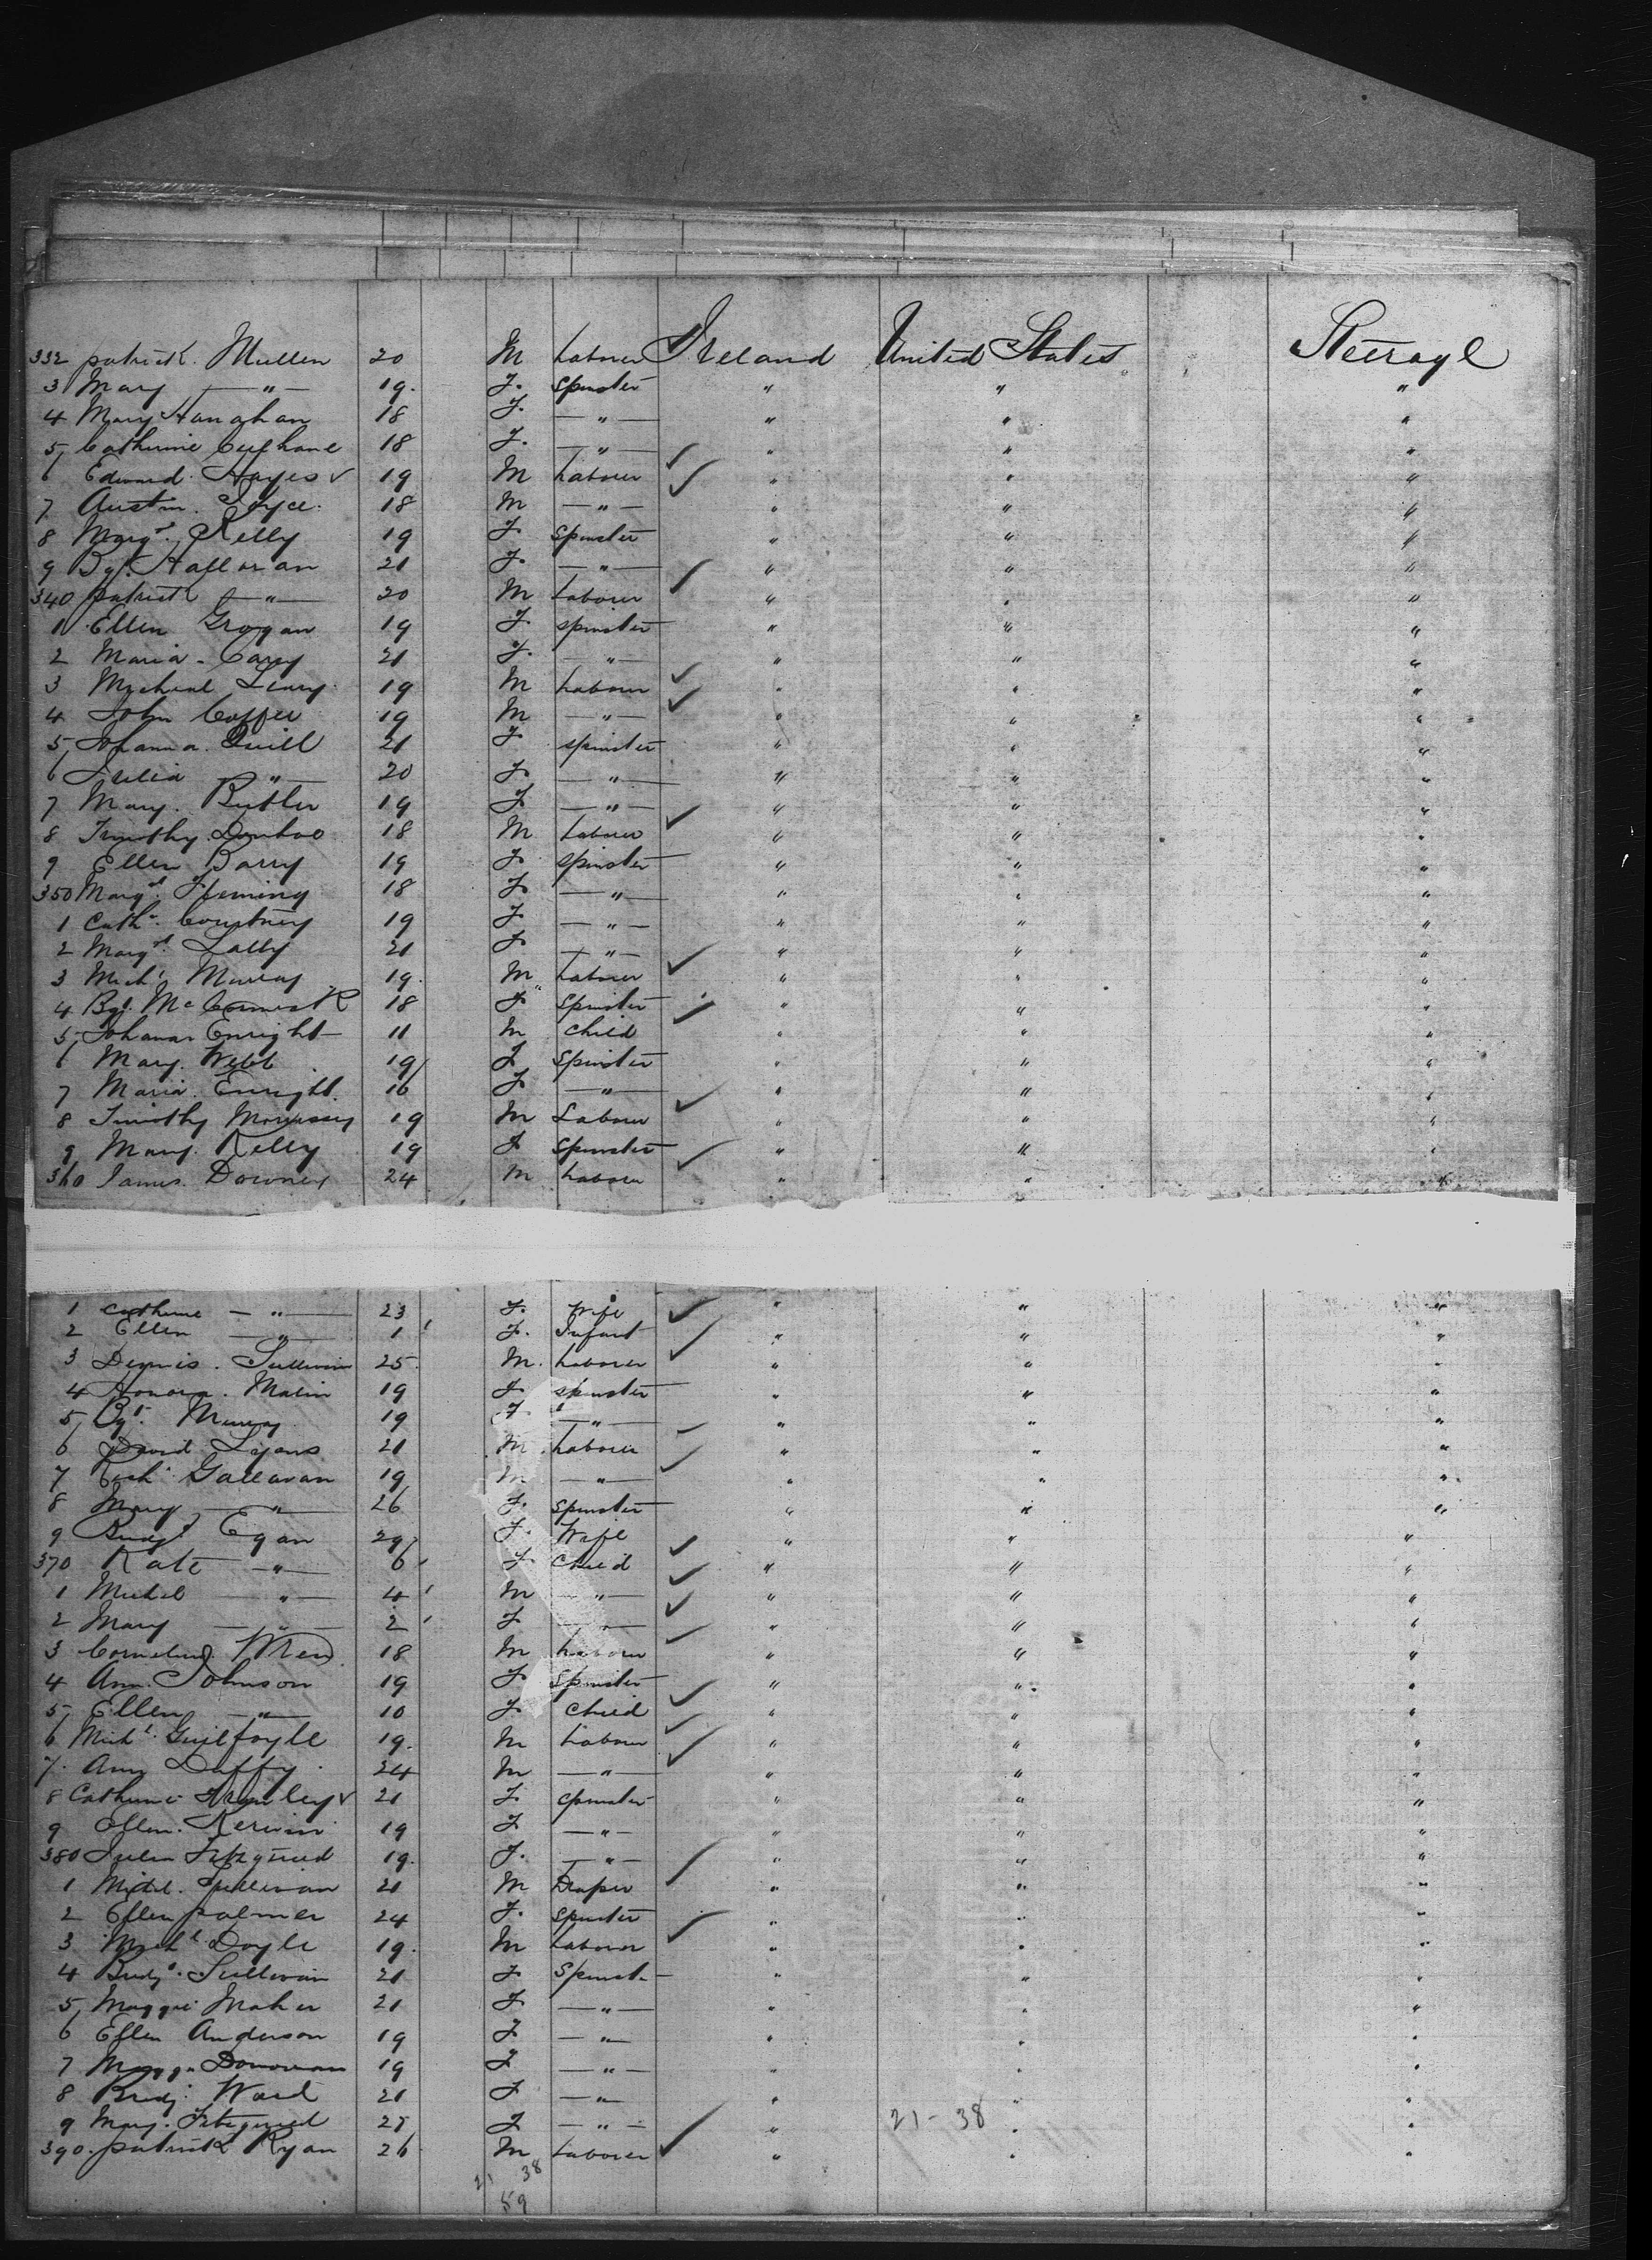 332 patrick. Mullen 20 M Laborer Ireland United States Steerage
3 Mary —"— 19. F. Spinster " " "
4 Mary Hanahan 18 F. —"— " " "
5, Catherine Culhane 18 F. —"— " " "
6 Edward Hayes ✓ 19 M Labourer ✓ " " "
7 Austin. Joyce. 18 M —"— " " "
8 Margt. Kelly 19 F Spinster " " "
9 Bgt. Halloran 21 F. —"— " " "
340 patrick —"— 20 M Laborer ✓ " " "
1 Ellen Grogan 19 F. spinster " " "
2 Maria. Carey 21 F. —"— " " "
3 Micheal Leary. 19 M Labourer ✓ " " "
4 John Coffee 19 M —"— ✓ " " "
5, Johanna. Quill 21 F spinster " " "
6 Julia —"— 20 F. —"— " " "
7 Mary. Butler 19 F —"— " " "
8 Timothy Donhoo 18 M Laborer ✓ " " "
9 Ellen Barry 19 F. spinster " " "
350 Margt. Fleming 18 F. —"— " " "
1 Cath. Courtney 19 F —"— " " "
2 Margt. Lally 21 F. —"— " " "
3 Michl Murray 19. M Laborer ✓ " " "
4 Bgt. McCormick 18 F Spinster " " "
5, Johanar Enright 11 M Child ✓ " " "
6 Mary. Webb 19 F Spinster " " "
7 Maria. Enright. 16 F. —"— " " "
8 Timothy Morrissey 19 M Labourer ✓ " " "
9 Mary. Kelly 19 F Spinster " " "
360 James. Downey 24 M Laborer ✓ " " "
1 Catherine —"— 23 F. Wife ✓ " " "
2 Ellen —"— 1 F. Infant ✓ " " "
3 Dennis. Sullivan 25. M. Laborer ✓ " " "
4 Honora. Malin 19 F spinster " " "
5, Bgt. Murray 19 F —"— " " "
6 David Lyons 21 M Laborer ✓ " " "
7 Rich. Gallavan 19 M —"— ✓ " " "
8 Mary —"— 26 F. Spinster " " "
9 Bridgt Egan 29 F. Wife ✓ " " "
370 Kate —"— 6 F Child ✓ " " "
1 Michel —"— 4 M —"— ✓ " " "
2 Mary —"— 2 F —"— ✓ " " "
3 Cornelius Wren 18 M Laborer ✓ " " "
4 Ann. Johnson 19 F Spinster " " "
5, Ellen —"— 10 F Child ✓ " " "
6 Michl. Guilfoyle 19. M Labourer ✓ " " "
7. Amy Duffy. 24 M —"— ✓ " " "
8 Catherine ✓ 21 F spinster " " "
9 Ellen. Kerwin 19 F —"— " " "
380 Julia Fitzgerald 19. F. —"— " " "
1 Michl. Sullivan 21 M Draper ✓ " " "
2 Ellen palmer 24 F. Spinster " " "
3 Michl Doyle 19. M Laborer ✓ " " "
4 Bridgt. Sullivan 21 F Spinst. " " "
5, Maggie Maher 21 F —"— " " "
6 Ellen Anderson 19 F —"— " " "
7 Donovan 19 F —"— " " "
8 Bridj. Ward 21 F —"— " " "
9 Mary. Fitzgerald 25 F —"— " 21 - 38 " "
390. patrick Ryan 26 M Laborer ✓ " " "
21 38
59